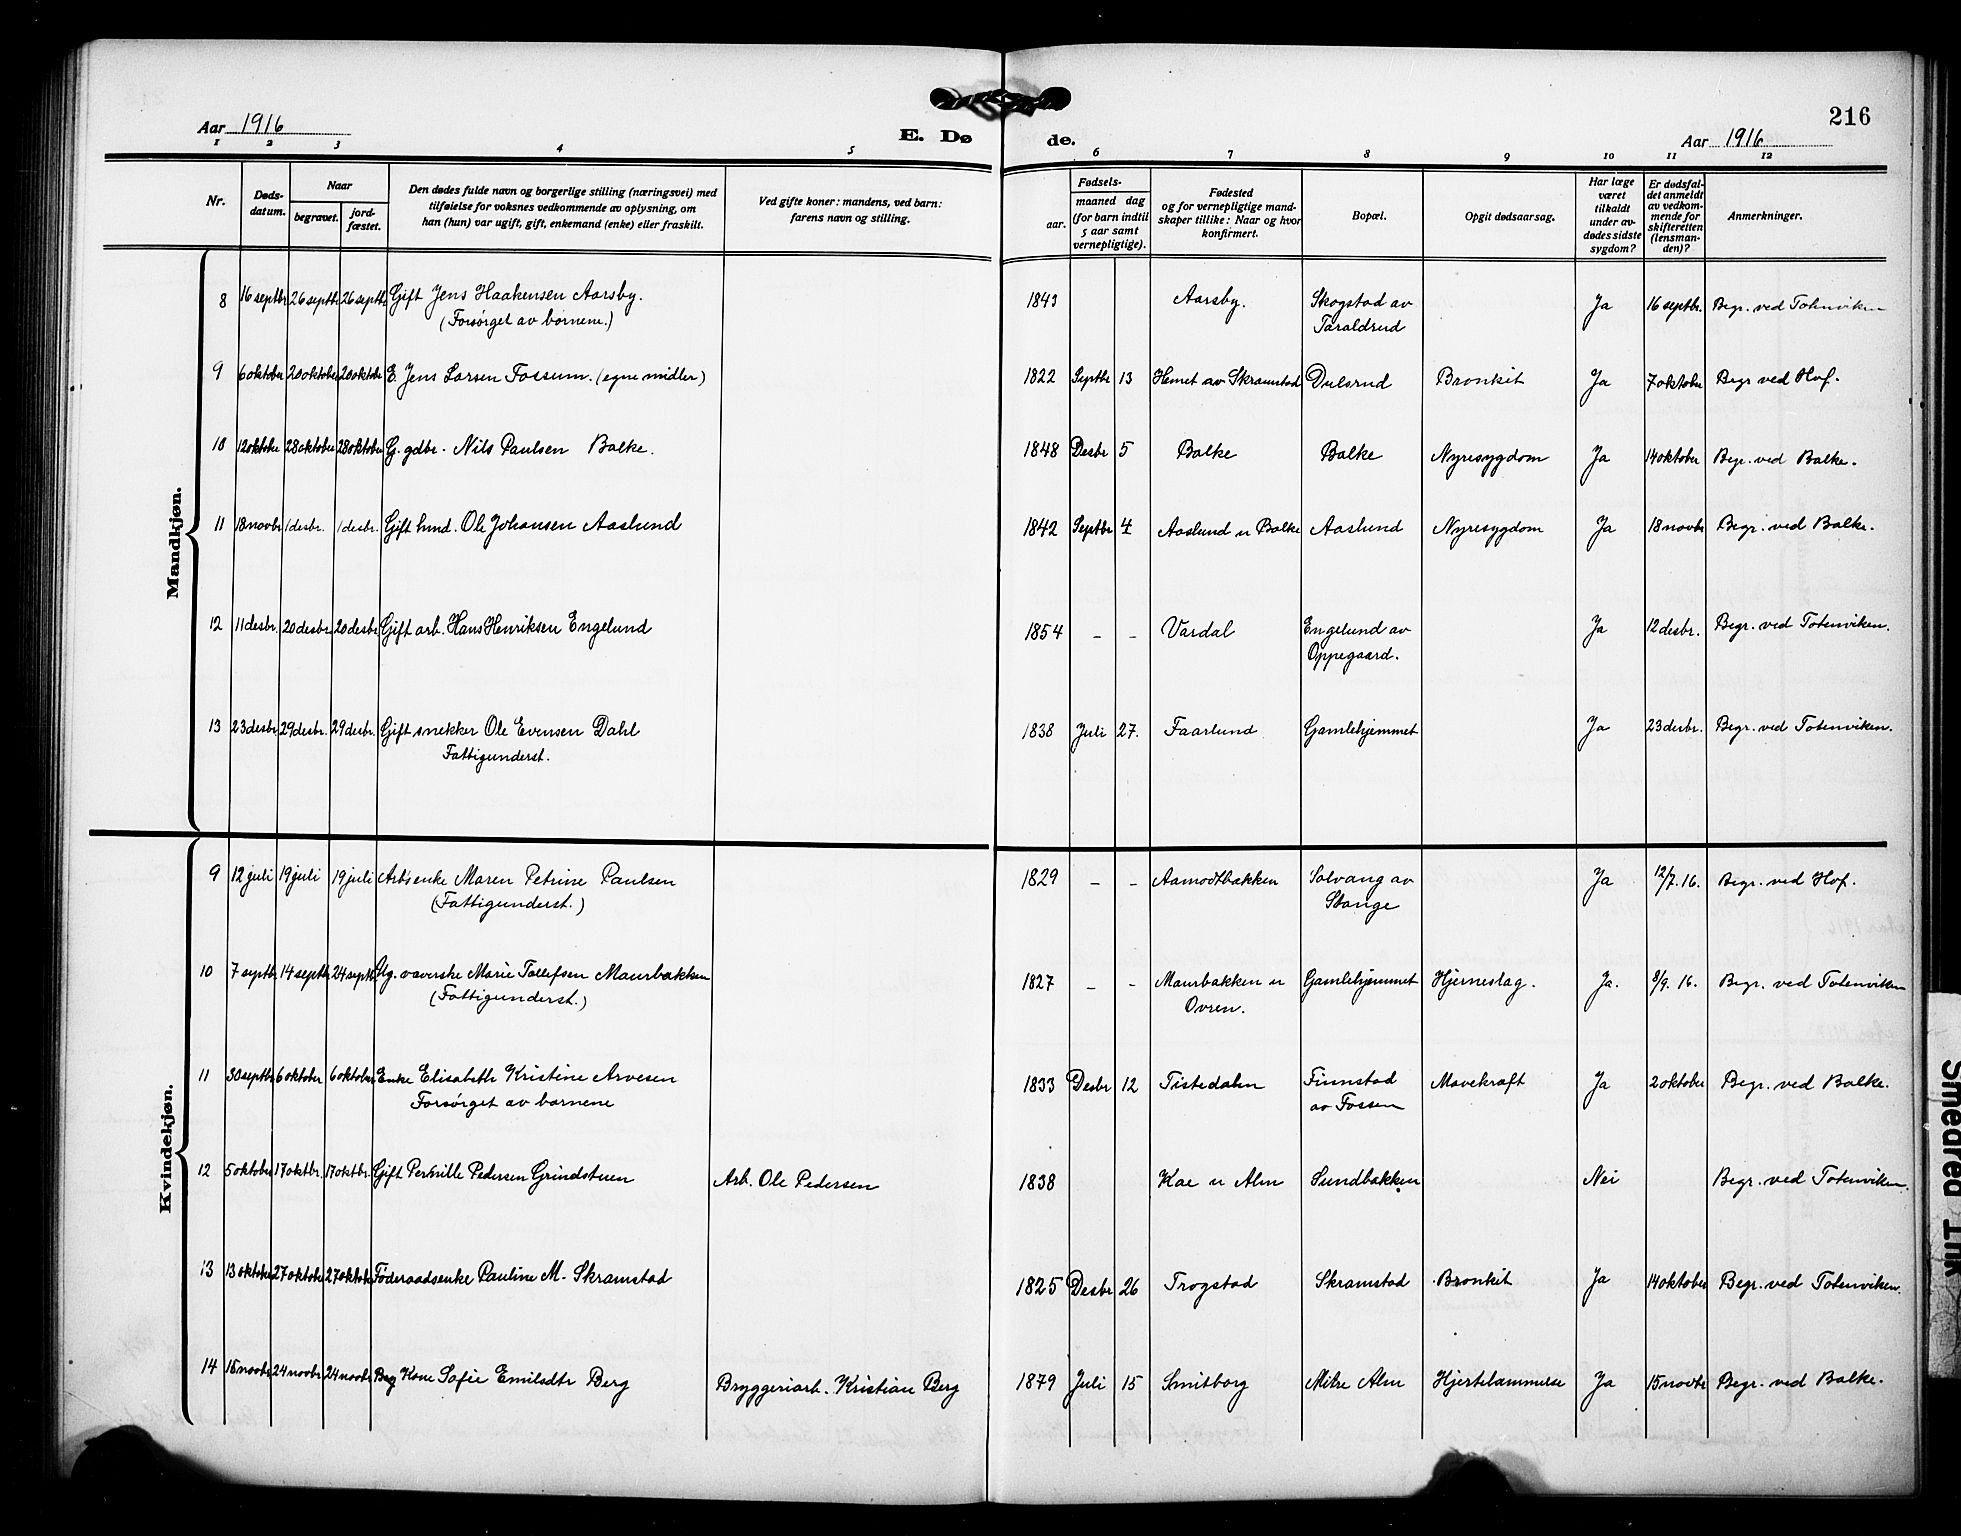 216
Aar 1916
E. Dø
de.
Aar 1916
1 2 3 4 5 6 7 8 9 10 11 12
Nr.
Døds-
datum.
Naar
begravet.
jord-
fæstet.
Den dødes fulde navn og borgerlige stilling (næringsvei) med
tilføielse for voksnes vedkommende av oplysning, om
han (hun) var ugift, gift, enkemand (enke) eller fraskilt.
Ved gifte koner: mandens, ved barn:
farens navn og stilling.
Fødsels-
aar.
maaned dag
(for barn indtil
5 aar samt
vernepligtige).
Fødested
og for vernepligtige mand-
skaper tillike: Naar og hvor
konfirmert.
Bopæl.
Opgit dødsaarsag.
Har læge
været
tilkaldt
under av-
dødes sidste
sygdom?
Er dødsfal-
det anmeldt
av vedkom-
mende for
skifteretten
(lensman-
den)?
Anmerkninger.
Mandkjøn.
8 16 septbr 26 septbr 26 septbr Gift Jens Haakensen Aarsby. 1843 Aarsby. Skogstad av Ja 16 septbr. Begr. ved Totenviken
(Forsørget av børnene.) Taraldrud
9 6 oktober 20 oktober 20 oktober E. Jens Larsen Fossum. (egne midler) 1822 Septbr 13 Hemet av Skramstad Dulsrud Bronkit Ja 7 oktober Begr ved Hof.
10 12 oktober 28 oktober 28 oktober G. gdbr. Nils Paulsen Balke. 1848 Desbr 5 Balke Balke Nyresygdom Ja 14 oktober Begr. ved Balke.
11 18 novbr 1 desbr. 1 desbr. Gift hmd. Ole Johansen Aaslund 1842 Septbr 4 Aaslund u Balke Aaslund Nyresygdom Ja 18 novbr Begr. ved Balke.
12 11 desbr. 20 desbr. 20 desbr Gift arb. Hans Henriksen Engelund 1854 - - Vardal Engelund av Ja 12 desbr. Begr. ved Totenviken.
Oppegaard.
13 23 desbr 29 desbr. 29 desbr. Gift snekker Ole Evensen Dahl 1838 Juli 27. Faarlund Gamlehjemmet Ja 23 desbr. Begr. ved Totenviken.
Fattigunderst.
Kvindekjøn.
9 12 juli 19 juli 19 juli Arb's enke Maren Petrine Paulsen 1829 - - Aamodtbakken Solvang av Ja 12/7. 16. Begr. ved Hof.
(Fattigunderst.) Stange
10 7 septbr 14 septbr 24 septbr Ug. væverske Marie Tollefsen Maurbakken 1827 - - Maurbakken u Gamlehjemmet Hjerneslag. Ja. 8/9. 16. Begr. ved Totenviken
(Fattigunderst.) Ovren.
11 30 septbr 6 oktober 6 oktober Enke Elisabeth Kristine Arvesen 1833 Desbr 12 Tistedalen Finnstad Mavekræft Ja 2 oktober Begr. ved Balke.
Forsørget av børnene av Fossen
12 5 oktober 17 oktbr. 17 oktbr. Gift Pernille Pedersen Grindstuen Arb. Ole Pedersen 1838 Kae u Alm Sundbakken Nei Begr. ved Totenviken.
13 13 oktober 27 oktober 27 oktober Føderaadsenke Pauline M. Skramstad 1825 Desbr 26 Trogstad Skramstad Bronkit Ja 14 oktober Begr. ved Totenviken.
14 15 novbr 24 novbr 24 novbr Kone Sofie Emilsdtr Berg Bryggeriarb. Kristian Berg 1879 Juli 15 Smitborg Alm Hjertelammelse Ja 15 novbr Begr. ved Balke.
Smedrød